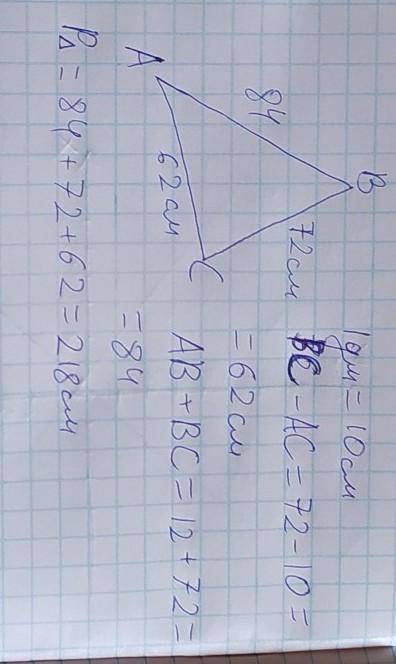 B
84
72 см
A
62 см
C
1дм = 10 см
BC - AC = 72 - 10 =
= 62 см
AB + BC = 12 + 72 =
= 84
P△ = 84 + 72 + 62 = 218 см